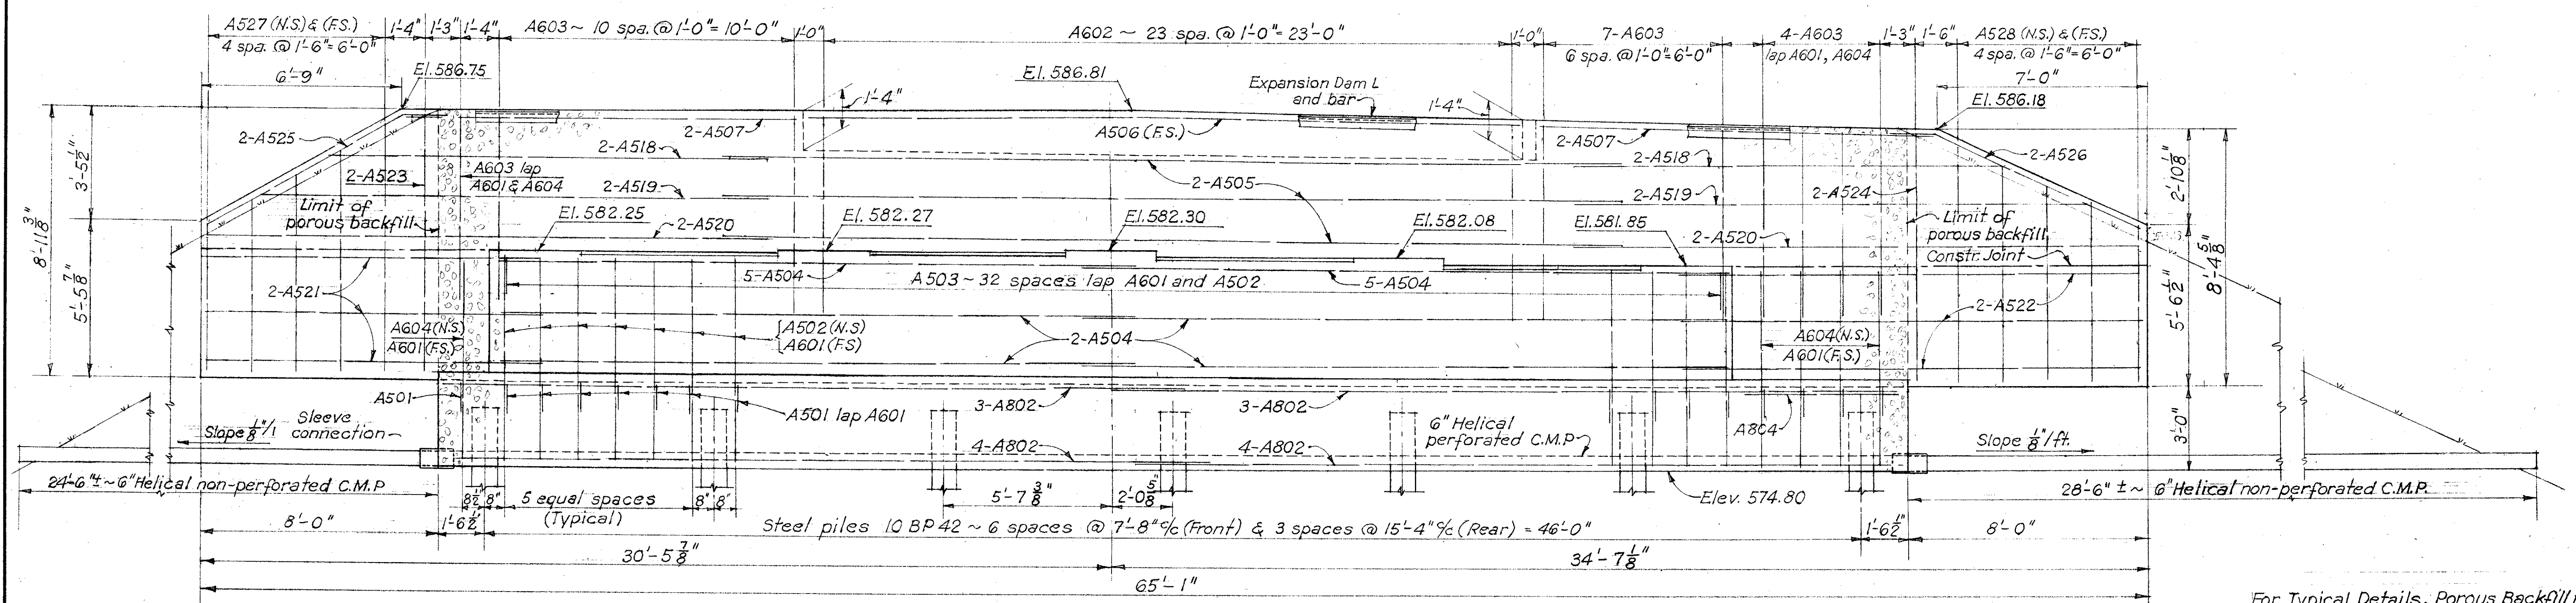 A527 (N.S.) & (F.S.)
4 spa. @ 1'-6"= 6'-0"
1'-4"
1'-3"
1'-4"
A603 ~ 10 spa. @ 1'-0"= 10'-0"
1'-0"
A602 ~ 23 spa. @ 1'-0"= 23'-0"
1'-0"
7-A603
6 spa. @ 1'-0"= 6'-0"
4-A603
lap A601, A604
1'-3"
1'-6"
A528 (N.S.) & (F.S.)
4 spa. @ 1'-6"= 6'-0"
6'-9"
El. 586.75
El. 586.81
Expansion Dam L
and bar
1'-4"
1'-4"
7'-0"
El. 586.18
2-A525
2-A507
A506 (F.S.)
2-A507
2-A526
2-A518
2-A518
3'-5 1/2"
2'-10 1/8"
2-A523
A603 lap
A601 & A604
2-A519
2-A505
2-A519
2-A524
Limit of
porous backfill
El. 582.25
El. 582.27
El. 582.30
El. 582.08
El. 581.85
Limit of
porous backfill
2-A520
2-A520
Constr. Joint
8'-11 3/8"
8'-4 5/8"
5'-5 7/8"
5'-6 1/2"
5-A504
A503 ~ 32 spaces lap A601 and A502
5-A504
2-A521
2-A522
A604 (N.S.)
A601 (F.S.)
A502 (N.S)
A601 (F.S)
2-A504
A604 (N.S.)
A601 (F.S.)
A501
A501 lap A601
3-A802
3-A802
A804
3'-0"
Sleeve
connection
Slope 1/8"/1
6" Helical
perforated C.M.P.
Slope 1/8"/ft.
4-A802
4-A802
24'-6"± ~ 6" Helical non-perforated C.M.P
8 1/2"
8"
5 equal spaces
(Typical)
8"
8"
5'-7 3/8"
2'-0 5/8"
Elev. 574.80
28'-6" ± ~ 6" Helical non-perforated C.M.P.
8'-0"
1'-6 1/2"
Steel piles 10 BP 42 ~ 6 spaces @ 7'-8" c/c (Front) & 3 spaces @ 15'-4" c/c (Rear) = 46'-0"
1'-6 1/2"
8'-0"
30'-5 7/8"
34'-7 1/8"
65'-1"
For Typical Details, Porous Backfill